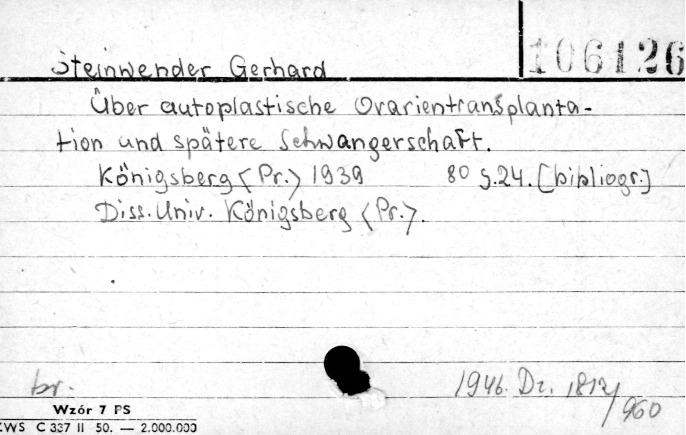 106126
Steinwender Gerhard
Über autoplastische Ovarientransplanta-
tion und spätere Schwangerschaft.
Königsberg <Pr.> 1939 8⁰ S.24. [bibliogr.]
Diss. Univ. Königsberg <Pr.>.
br.
1946. Dz. 1812/960
Wzór 7 PS
ZWS C 337 II 50. — 2.000.000